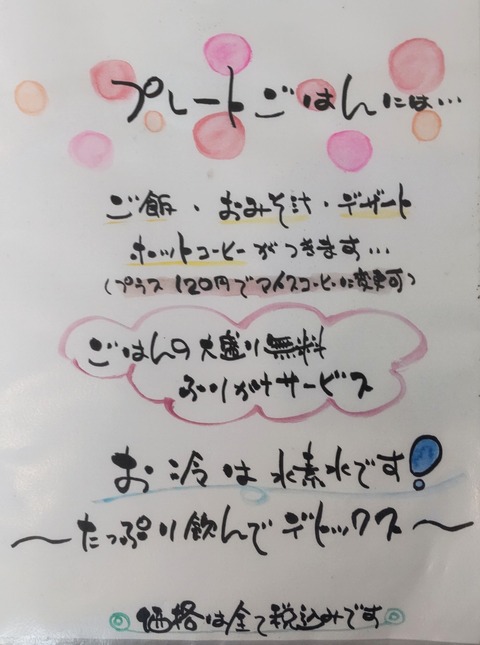 プレートごはんには…
ご飯・おみそ汁・デザート
ホットコーヒーがつきます…
(プラス120円でアイスコーヒーに変更可)
ごはんの大盛り無料
ふりかけサービス
お冷は水素水です!
～たっぷり飲んでデトックス～
◎価格は全て税込みです◎